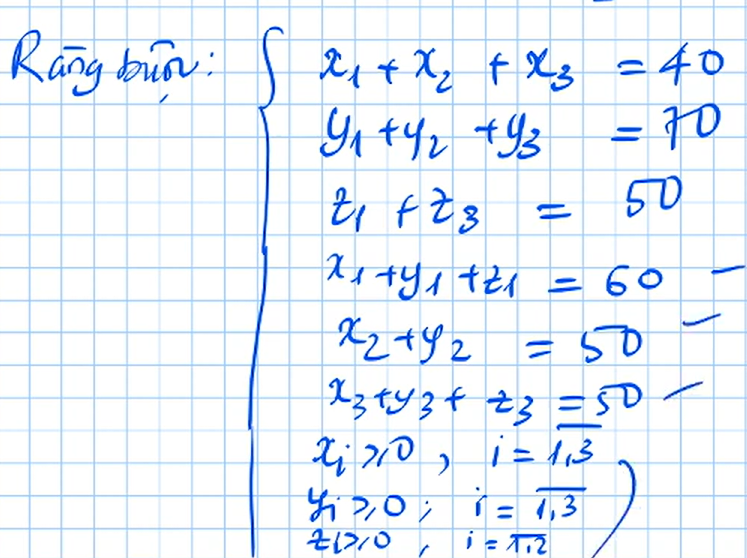 Ràng buộc: { x₁ + x₂ + x₃ = 40
y₁ + y₂ + y₃ = 70
z₁ + z₃ = 50
x₁ + y₁ + z₁ = 60 –
x₂ + y₂ = 50 –
x₃ + y₃ + z₃ = 50 –
xᵢ ≥ 0, i = \overline{1,3}
yᵢ ≥ 0; i = \overline{1,3}
zᵢ ≥ 0, i = \overline{1,2}